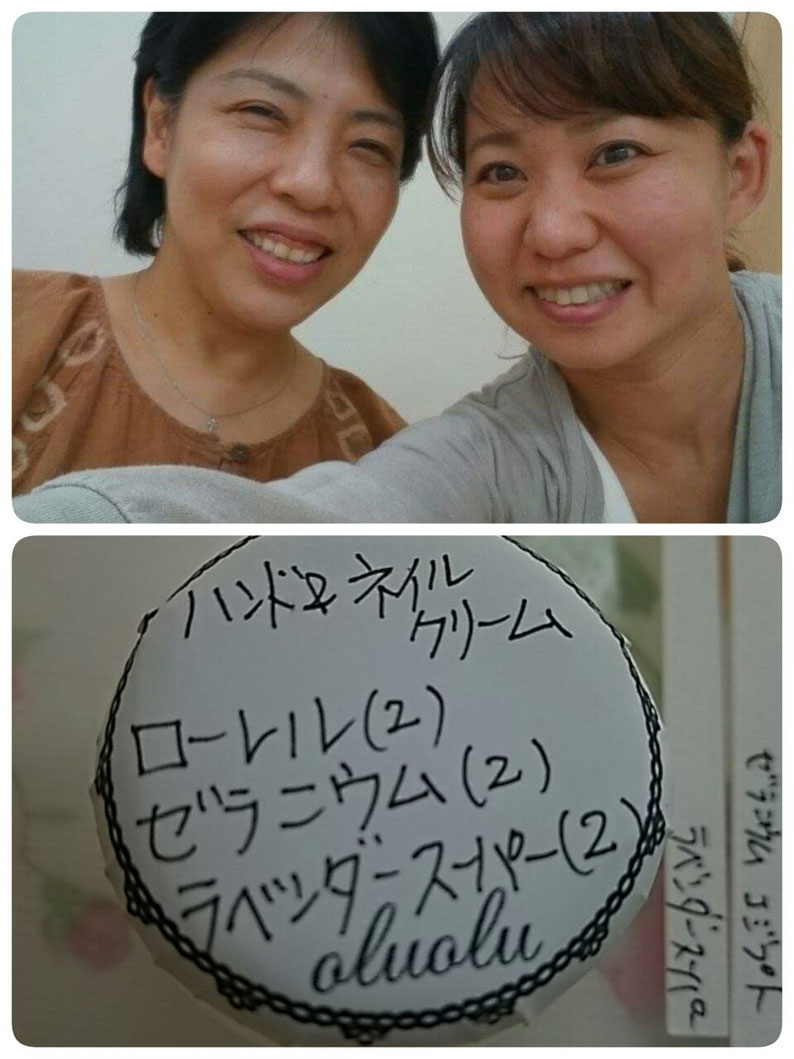 ハンド&ネイル
クリーム
ローレル(2)
ゼラニウム(2)
ラベンダースーパー(2)
oluolu
ラベンダースーパー
ゼラニウム エジプト